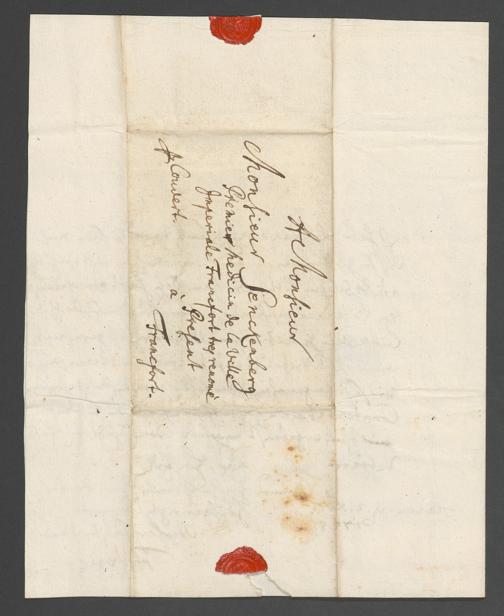 A Monsieur
Monsieur Senckenberg
Premier Medicin de la Ville
Imperiale Francfort trez renomé
Present
à
Francfort.
Couvert